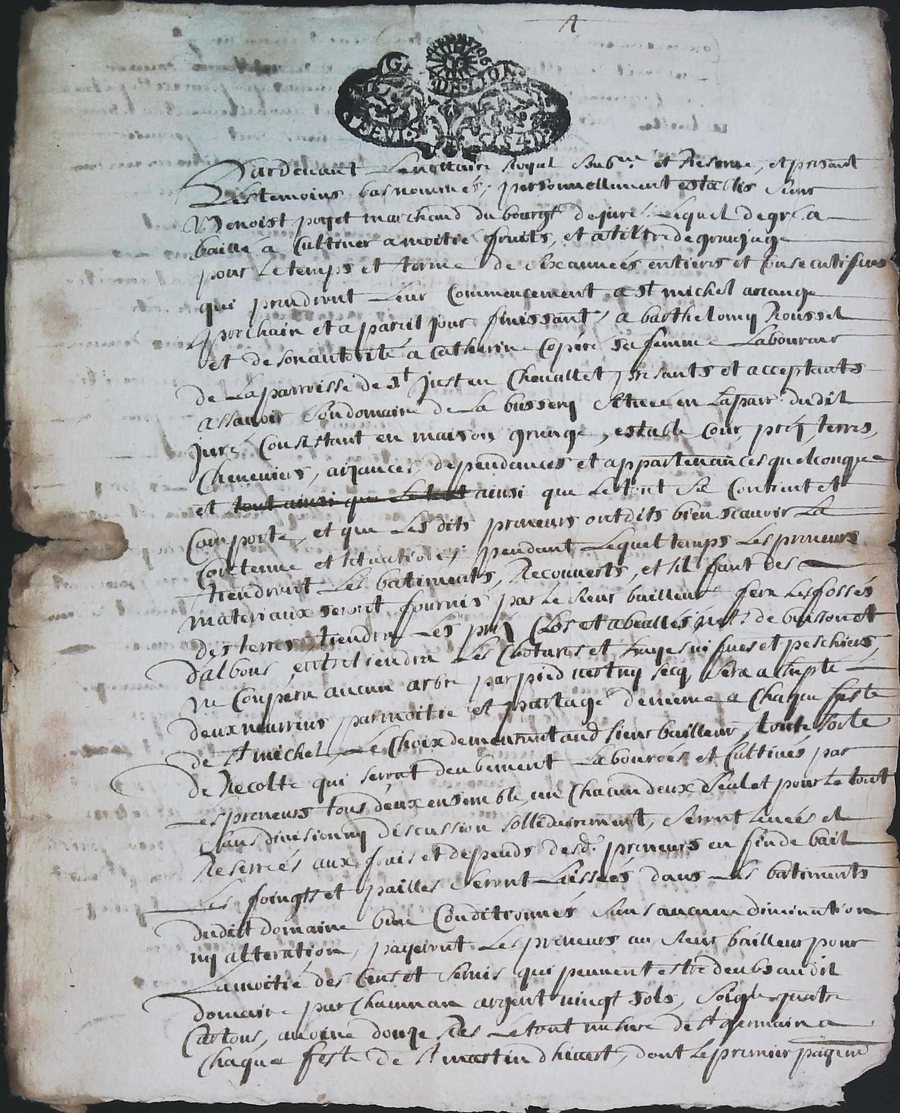 A
G DE LYON
Pardevant Le notaire Royal Soubne et Reserve, et presant
Les temoins bas nommés, personnellement establis sieur
Benoist poyet marchand du bourg de juré, Lequel de gré a
baillé a Cultiver a moitié fruits, et a tiltre de grangage
pour Le temps et terme de six années entieres et consecutifues
qui prendront Leur Commencement a St michel arcange
prochain et a pareil jour finissant, a barthelemy Rousset
et de son autorité a Catherine Copéré sa femme Laboureur
de La parroisse de St just en Chevallet presants et acceptants
assavoir Son domaine de La bussery Situé en La parr. dudit
juré Consistant en maison grange, estable Cour prés, terres,
Cheneviers, aizances dependances et appartenances quelconque
et tout ainsi que Le tout ainsi que Le tout Se Contient et
Comporte, et que Les dits preneurs ont dits bien scavoir La
Contenue et situation, pendant Lequel temps Les preneurs
tiendront Les batiments, Recouverts, et sil faut des
materiaux seront fournis par Le sieur bailleur fera Les fossés
des terres tiendra Les prés Clos et abeallés nets de buisson et
d'albous entretiendra Les Clotures et
ne Coupera aucun arbre par pied vert ny secq Sera
deux par moitié et partagé de meme a Chaque feste
de St michel Le Choix demeurant aud sieur bailleur, toute sorte
de Recolte qui seront deubement Labourées et Cultivés par
Les preneurs tous deux ensemble, un Chacun deux seul et pour Le tout
sans division ny discussion sollidairement, seront Levées et
Reserrées aux frais et depends desd. preneurs en fin de bail
Les foingts et pailles seront Laissées dans Les batiments
dudit domaine bien Conditionnés sans aucune diminution
ny alteration, payeront Les preneurs au sieur bailleur pour
La moitié des Cens et Servis qui peuvent estre deubs audit
domaine par Chacun an argent vingt sols, seigle quatre
Cartons, avoine douze ras Le tout mesure de St germain a
Chaque feste de St martin d'hivert, dont Le premier payem